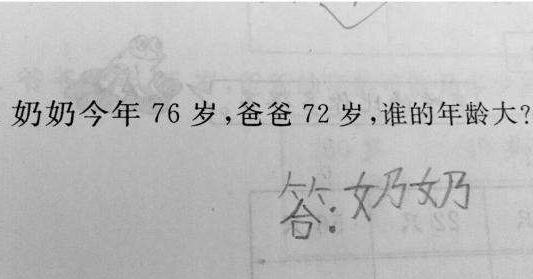 奶奶今年 76 岁,爸爸 72 岁,谁的年龄大?
答:奶奶